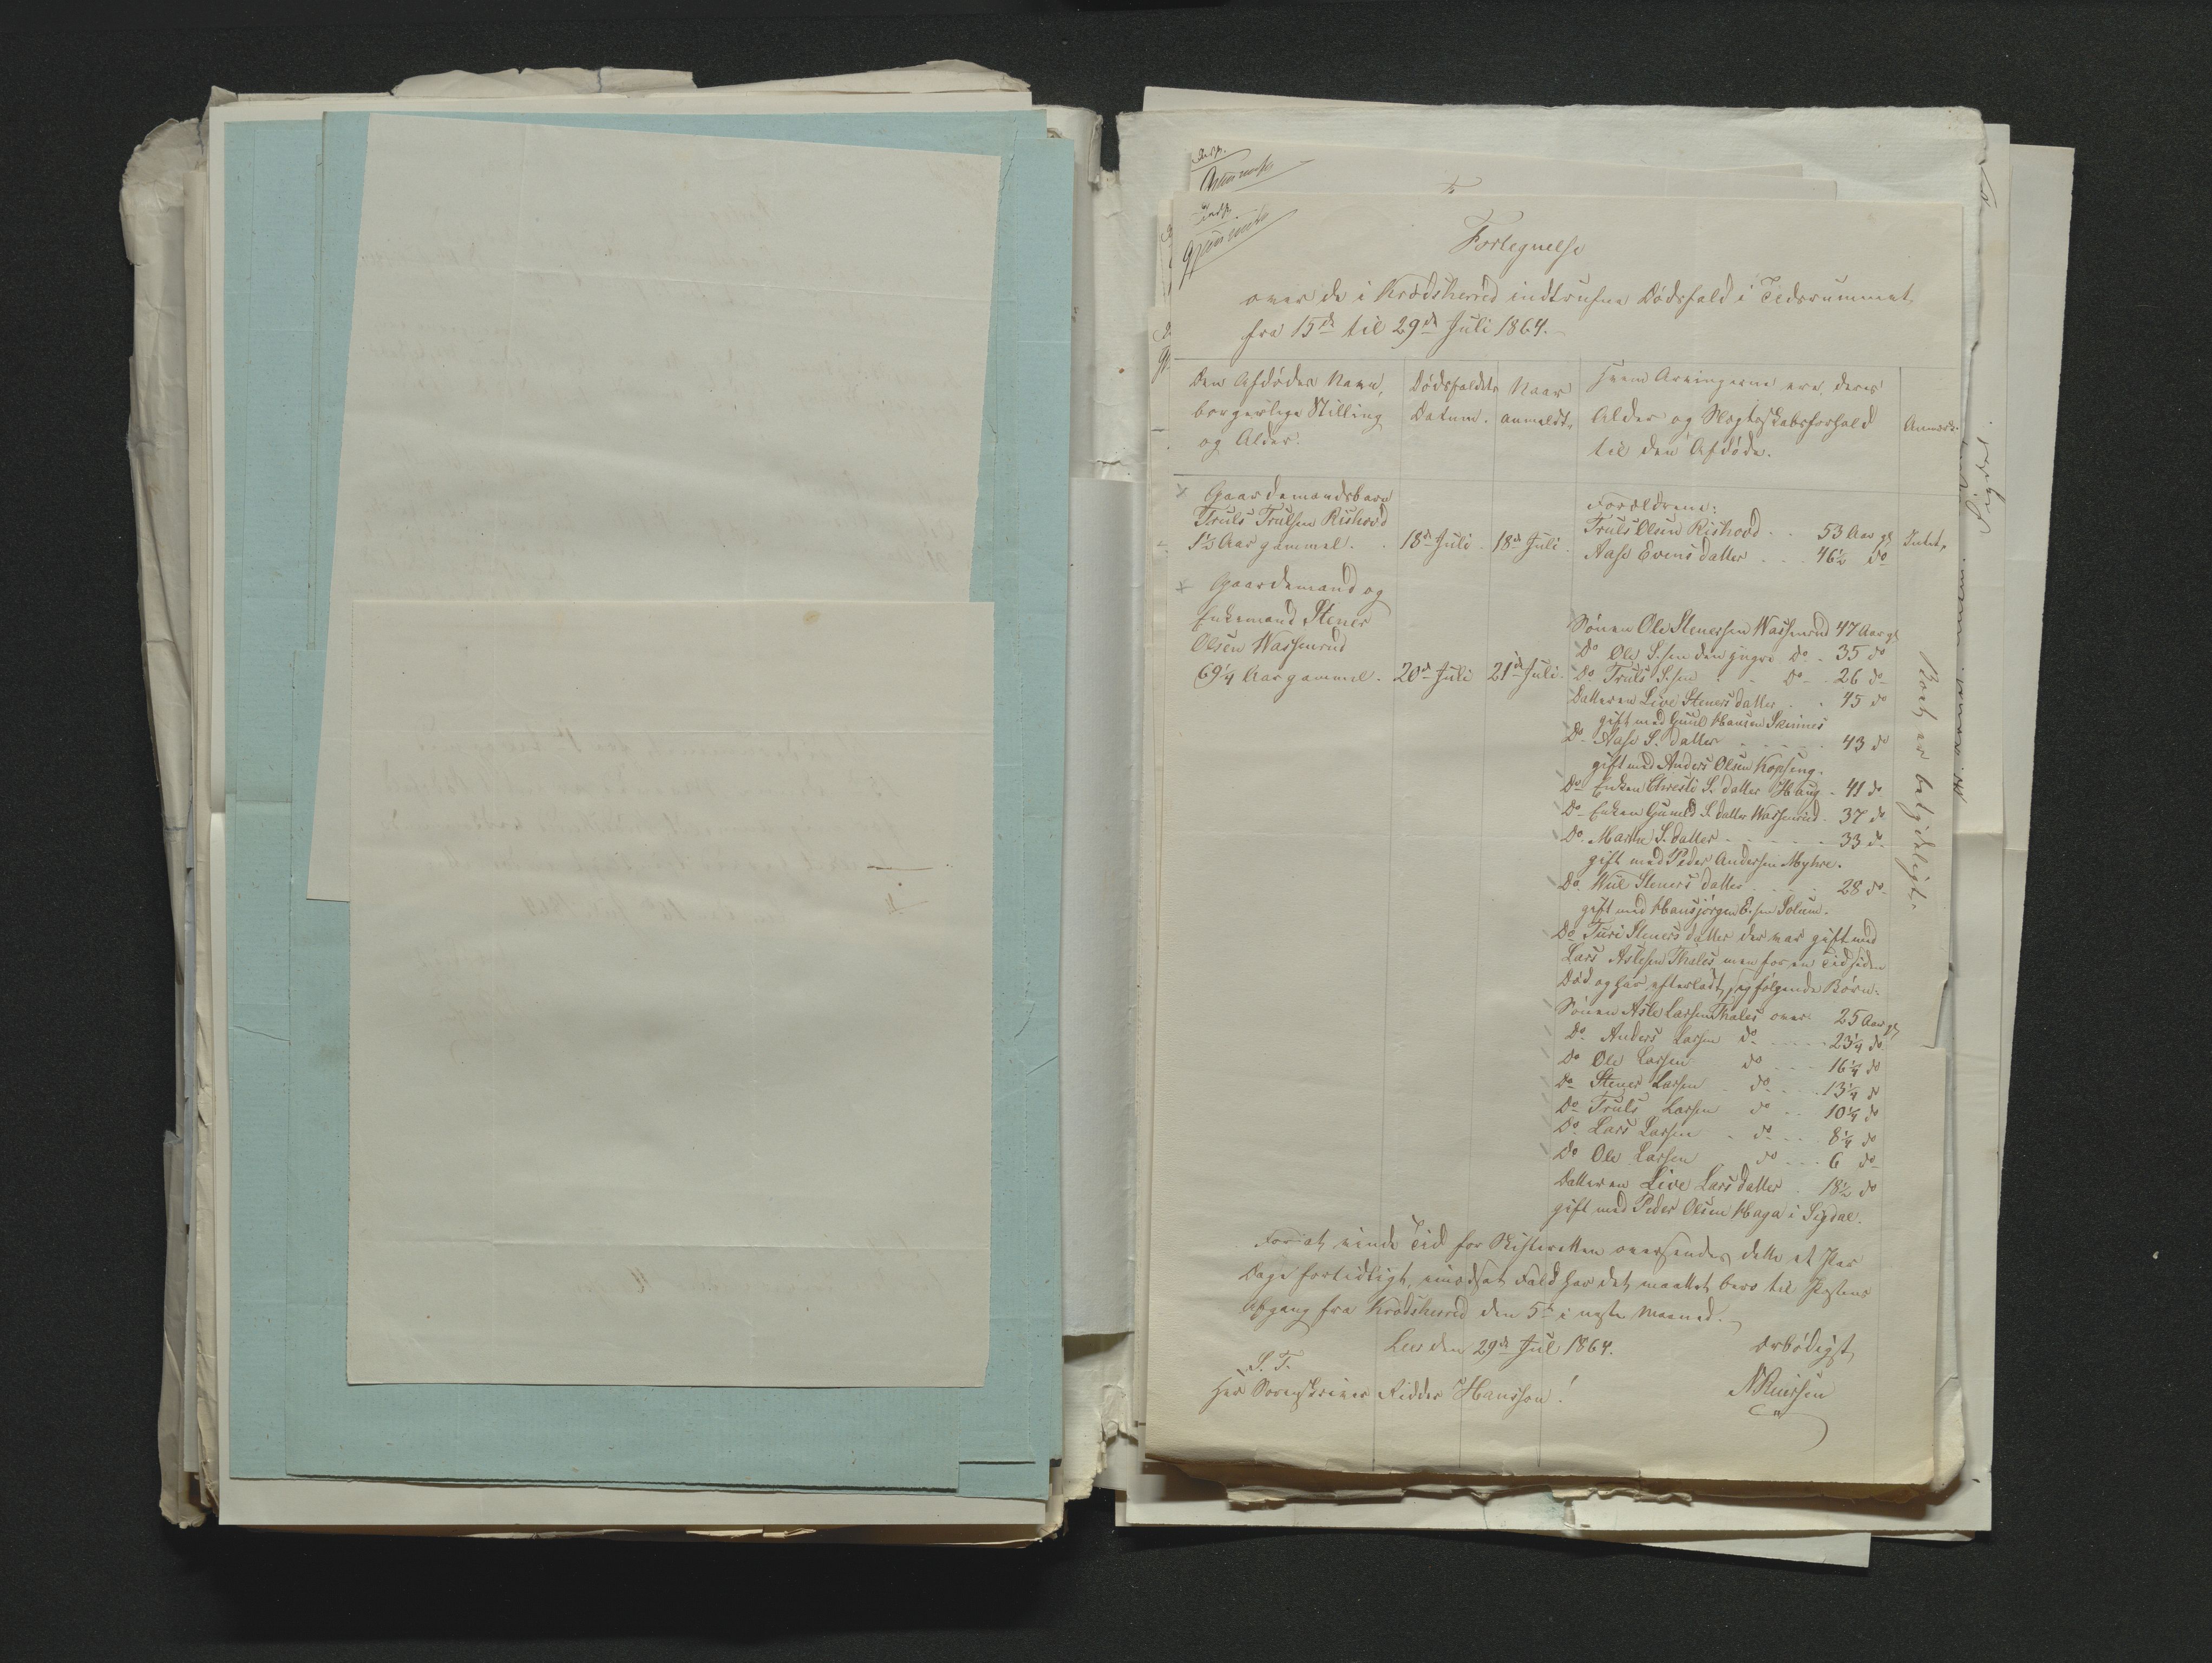 Indk.
Fortegnelse
over de i Krødsherred indtrufne Dødsfald i Tidsrummet
fra 15de til 29de Juli 1864.
Den Afdødes Navn,
borgerlige Stilling
og Alder.
Dødsfaldets
Datum.
Naar
anmeldt.
Hvem Arvingerne ere, deres
Alder og Slegtskabsforhold
til den Afdøde.
Anmærk.
Gaardemandsbarn
Truls Trulsen Rishovd
1½ Aar gammel. 18de Juli 18de Juli.
Forældrene:
Truls Olsen Rishovd . . 53 Aar gl
Aase Evensdatter . . . 46½ do
Intet.
Gaardemand og
Enkemand Stener
Olsen Wassenrud
69¼ Aar gammel. 20de Juli 21de Juli.
Sønen Ole Stenersen Wassenrud 47 Aar gl
Do Ole S.sen den yngre Do . 35 do
Do Truls S.sen . . Do . 26 do
Datteren Live Stenersdatter . . 45 do
gift med Guul Hansen Skinnes
Do Aase S. datter . . . . 43 do
gift med Anders Olsen Kopseng.
Do Enken Christi S. datter Haug . 41 do
Do Enken Gunild S. datter Wassenrud . 37 do
Do Marthe S. datter . . . . 33 do
gift med Peder Andersen Myhre.
Do Stenersdatter . . . 28 do
gift med Hansjørgen E.sen Solum.
Do Turi Stenersdatter der var gift med
Lars Aslesen Thales, men for en Tid siden
Død og har efterladt sig følgende Børn:
Sønen Asle Larsen Thales over 25 Aar gl
Do Anders Larsen do . . . 23¼ do
Do Ole Larsen do . . . 16¼ do
Do Stener Larsen do . . . 13¼ do
Do Truls Larsen do . . 10¼ do
Do Lars Larsen do . . . 8¼ do
Do Ole Larsen do . . . 6 do
Datteren Live Larsdatter . 18½ do
gift med Peder Olsen Haga i Sigdal.
Boet er betydeligt.
For at vinde Tid for Skifteretten oversendes dette et Par
Dage fortidligt, modsat Fald har det maattet bero til Postens
Afgang fra Krødsherred den 5te i neste Maaned.
Leer den 29de Juli 1864.
Ærbødigst
S. T.
Herr Sorenskriver Ridder Hansson!
Sigdal.